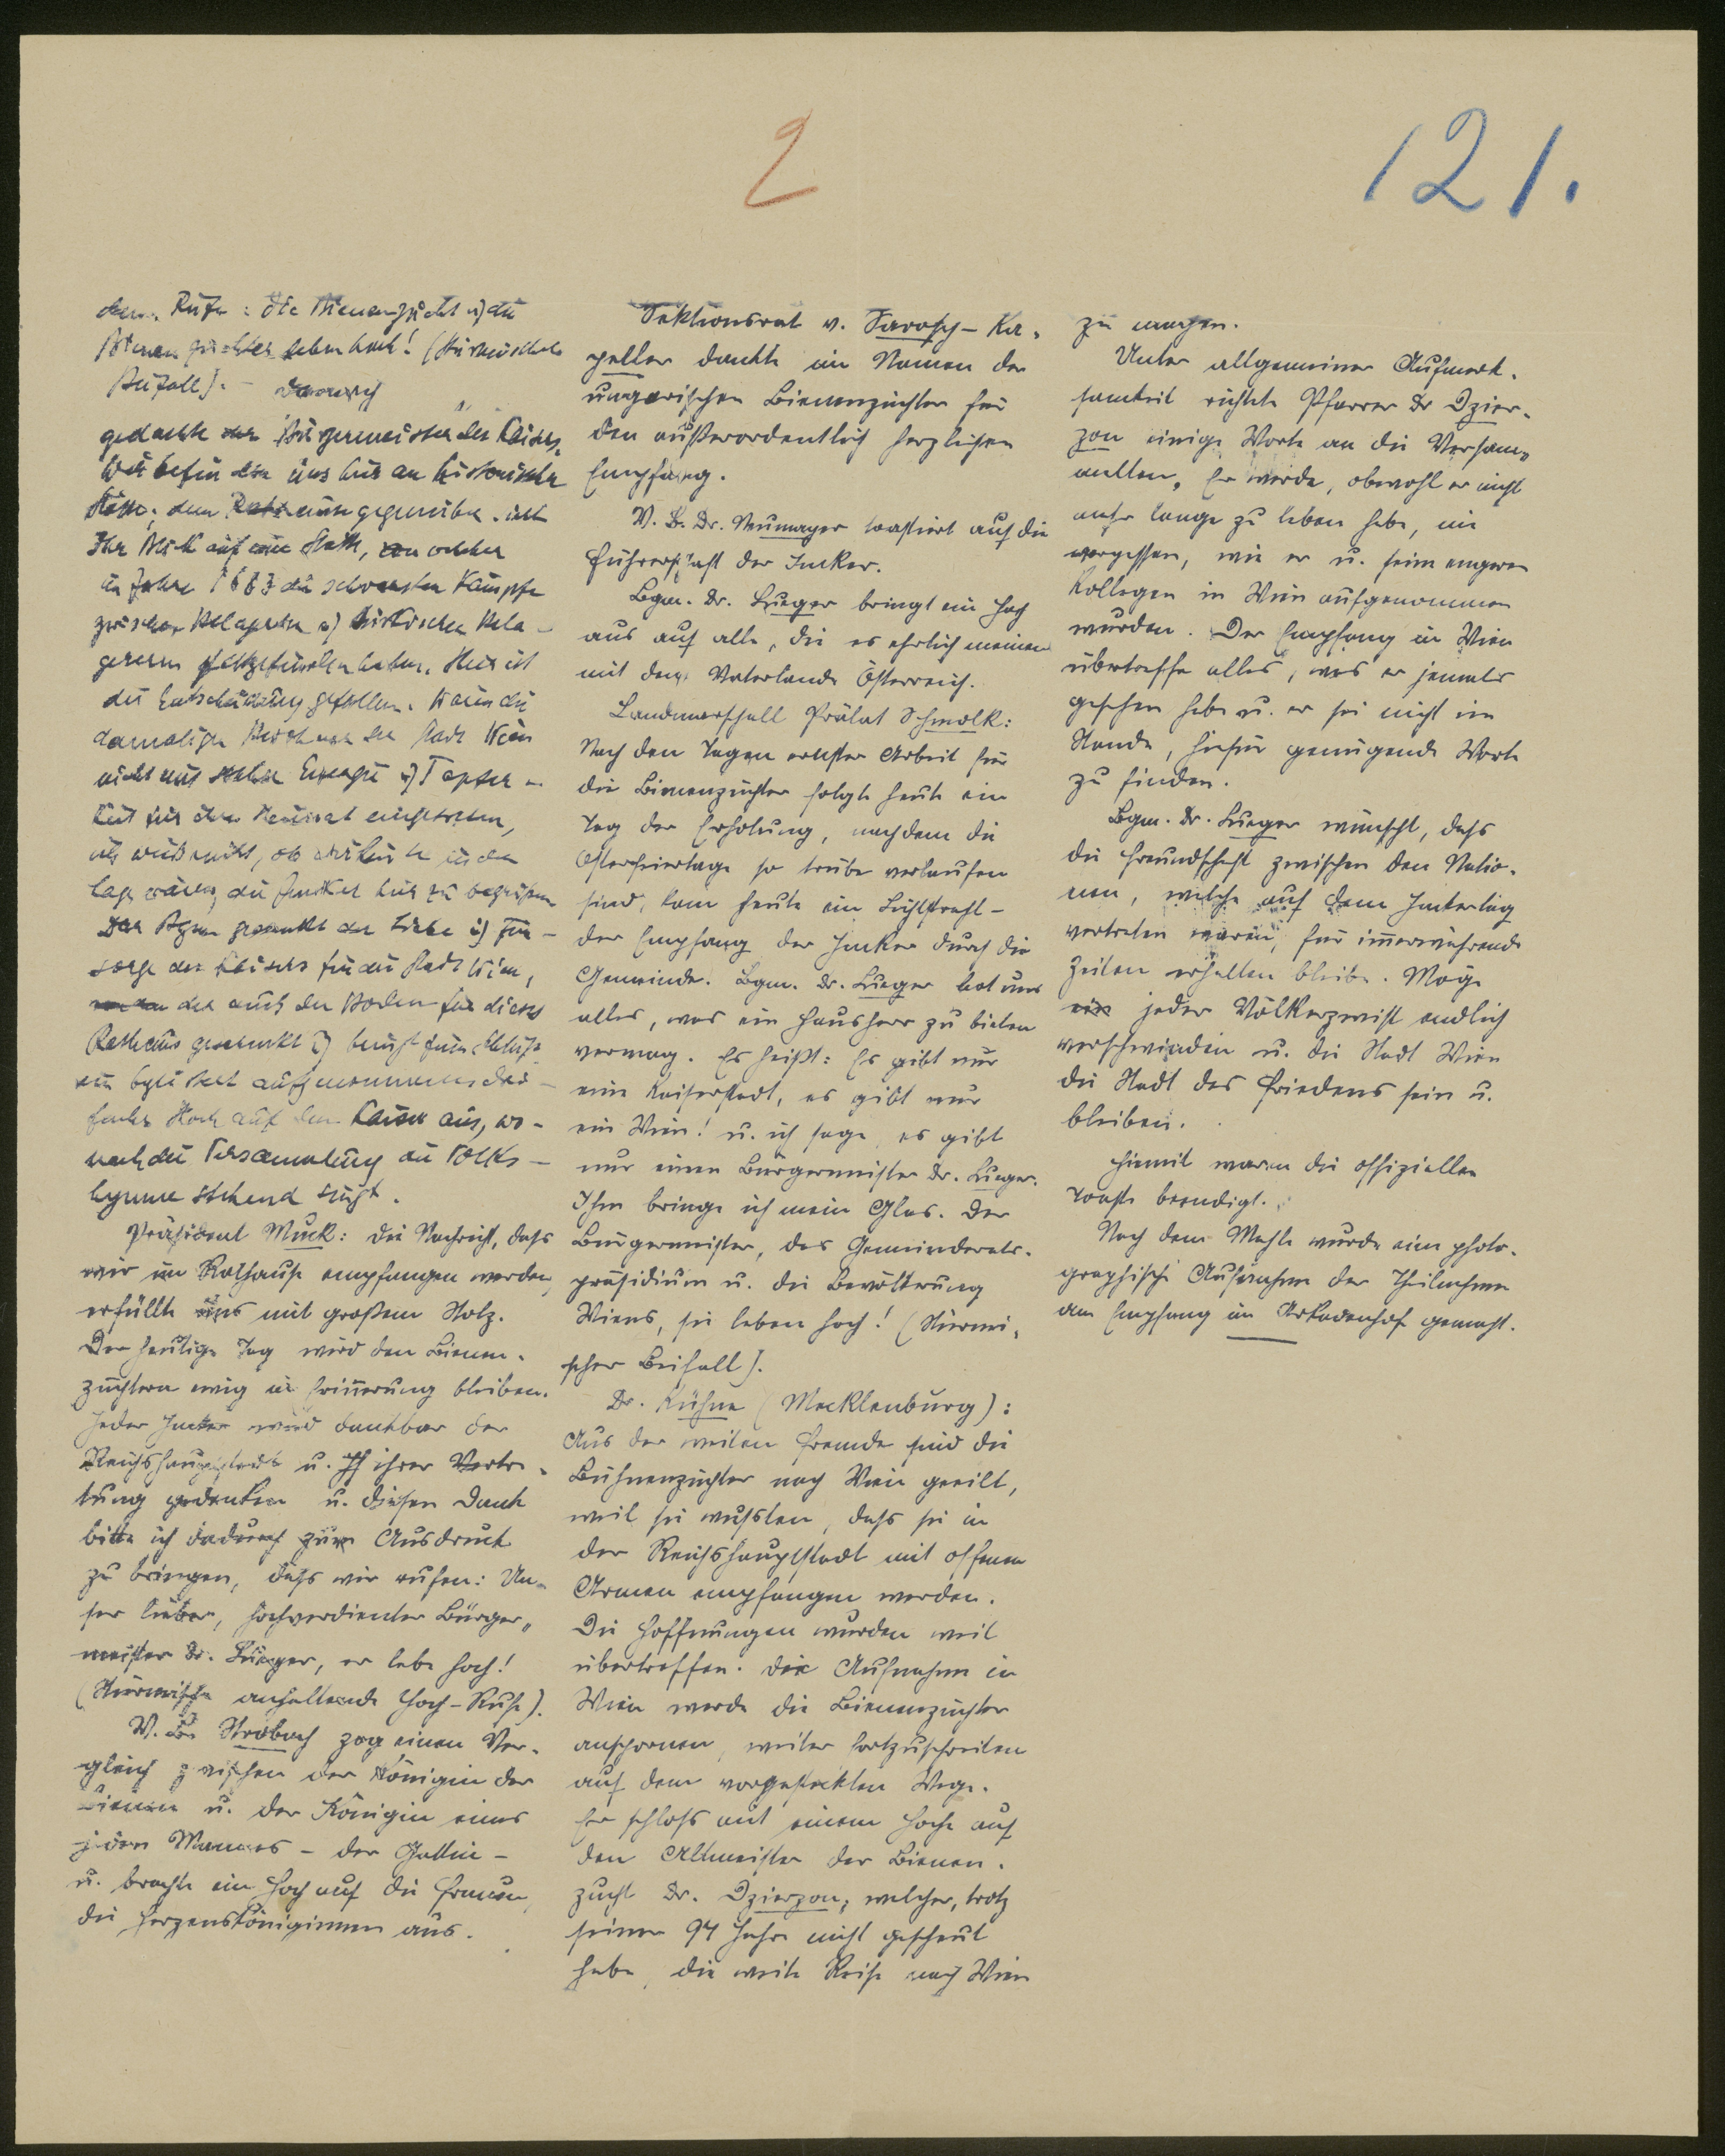 2
121.
dem Rufe: die Bienenzucht u) die
Bienenzüchter leben hoch! (Stürmischer
Beifall). – Danach
gedachte der Bürgermeister des Kaisers.
Wir befinden uns hier an historischer
Stätte, dem Rathause gegenüber. ist
Ihr Blick auf eine Stelle, an welcher
im Jahre 1683 die schwersten Kämpfe
zwischen Belagerten u) türkischen Bela-
gerern stattgefunden haben. Hier ist
die Entscheidung gefallen. Wären die
damaligen Bewohner der Stadt Wien
nicht mit solcher Energie u) Tapfer-
keit für ihre Heimat eingetreten,
ich weiß nicht, ob wir heute in der
Lage wären, die Imker hier zu begrüßen.
Der Bgm. gedenkt der Liebe u) Für-
sorge des Kaisers für die Stadt Wien,
der auch den Boden für dieses
Rathaus geschenkt u) bringt zum Schluß
ein begeistert aufgenommenes drei-
faches Hoch auf den Kaiser aus, wo-
nach die Versammlung die Volks-
hymne stehend singt.
Präsident Muck: Die Nachricht, dass
wir im Rathause empfangen werden,
erfüllte uns mit großem Stolz.
Der heutige Tag wird den Bienen-
züchtern ewig in Erinnerung bleiben.
Jeder Imker wird dankbar der
Reichshauptstadt u. ihrer Vertre-
tung gedenken u. diesen Dank
bitte ich dadurch zum Ausdruck
zu bringen, dass wir rufen: Un-
ser lieber, hochverdienter Bürger-
meister Dr. Lueger, er lebe hoch!
(Stürmische anhaltende Hoch-Rufe).
V. B. Strobach zog einen Ver-
gleich zwischen der Königin der
Bienen u. der Königin eines
jeden Mannes – der Gattin –
u. brachte ein Hoch auf die Frauen,
die Herzensköniginnen aus.
Sektionsrat v. Tarosch-Ka-
peller dankte im Namen der
ungarischen Bienenzüchter für
den außerordentlich herzlichen
Empfang.
V. B. Dr. Neumayer toastiert auf die
Führerschaft der Imker.
Bgm. Dr. Lueger bringt ein Hoch
aus auf alle, die es ehrlich meinen
mit dem Vaterlande Österreich.
Landmarschall Prälat Schmolk:
Nach den Tagen ernster Arbeit für
die Bienenzüchter folgte heute ein
Tag der Erholung, nachdem die
Osterfeiertage so trübe verlaufen
sind, kam heute ein Lichtstrahl –
der Empfang der Imker durch die
Gemeinde. Bgm. Dr. Lueger bot uns
alles, was ein Hausherr zu bieten
vermag. Es heißt: Es gibt nur
eine Kaiserstadt, es gibt nur
ein Wien! u. ich sage, es gibt
nur einen Bürgermeister Dr. Lueger.
Ihm bringe ich mein Glas. Der
Bürgermeister, das Gemeinderats-
präsidium u. die Bevölkerung
Wiens, sie leben hoch! (Stürmi-
scher Beifall).
Dr. Kühne (Mecklenburg):
Aus der weiten Fremde sind die
Bienenzüchter nach Wien geeilt,
weil sie wussten, dass sie in
der Reichshauptstadt mit offenen
Armen empfangen werden.
Die Hoffnungen wurden weit
übertroffen. Die Aufnahme in
Wien werde die Bienenzüchter
anspornen, weiter fortzuschreiten
auf dem vorgesteckten Wege.
Er schloss mit einem Hoch auf
den Altmeister der Bienen-
zucht Dr. Dzierzon, welcher, trotz
seiner 94 Jahre nicht gescheut
habe, die weite Reise nach Wien
zu machen.
Unter allgemeiner Aufmerk-
samkeit richtete Pfarrer Dr Dzier-
zon einige Worte an die Versam-
melten. Er werde, obwohl er nicht
mehr lange zu leben habe, nie
vergessen, wie er u. seine engeren
Kollegen in Wien aufgenommen
wurden. Der Empfang in Wien
übertreffe alles, was er jemals
gesehen habe u. er sei nicht im
Stande, hiefür genügende Worte
zu finden.
Bgm. Dr. Lueger wünscht, dass
die Freundschaft zwischen den Natio-
nen, welche auf dem Imkertag
vertreten waren, für immerwährende
Zeiten erhalten bleibe. Möge
jeder Völkerzwist endlich
verschwinden u. die Stadt Wien
die Stadt des Friedens sein u.
bleiben.
Hiemit waren die offiziellen
Toaste beendigt.
Nach dem Mahle wurde eine photo-
graphische Aufnahme der Theilnehmer
am Empfang im Arkadenhof gemacht.